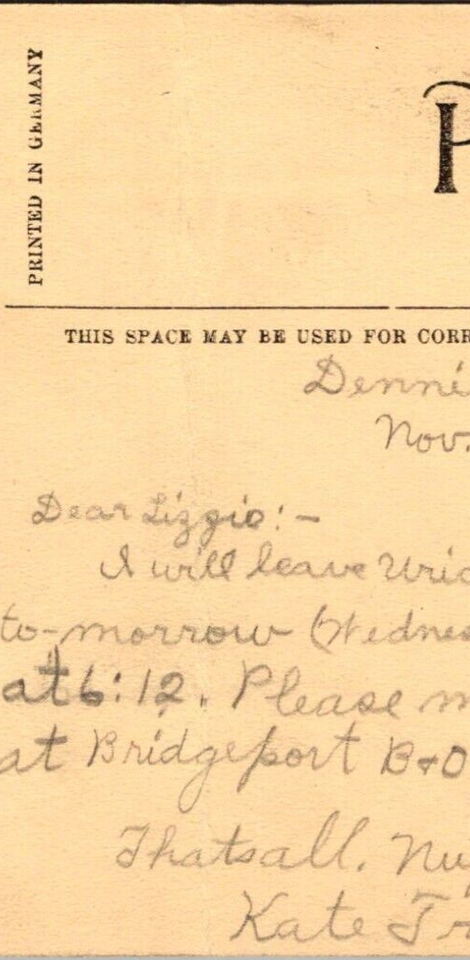 PRINTED IN GERMANY
P
THIS SPACE MAY BE USED FOR CORR
Denni
Nov.
Dear Lizzie:-
I will leave Uric
to-morrow (Wednes
at 6:12. Please m
at Bridgeport B+O
Thatsall. Nu
Kate Tr